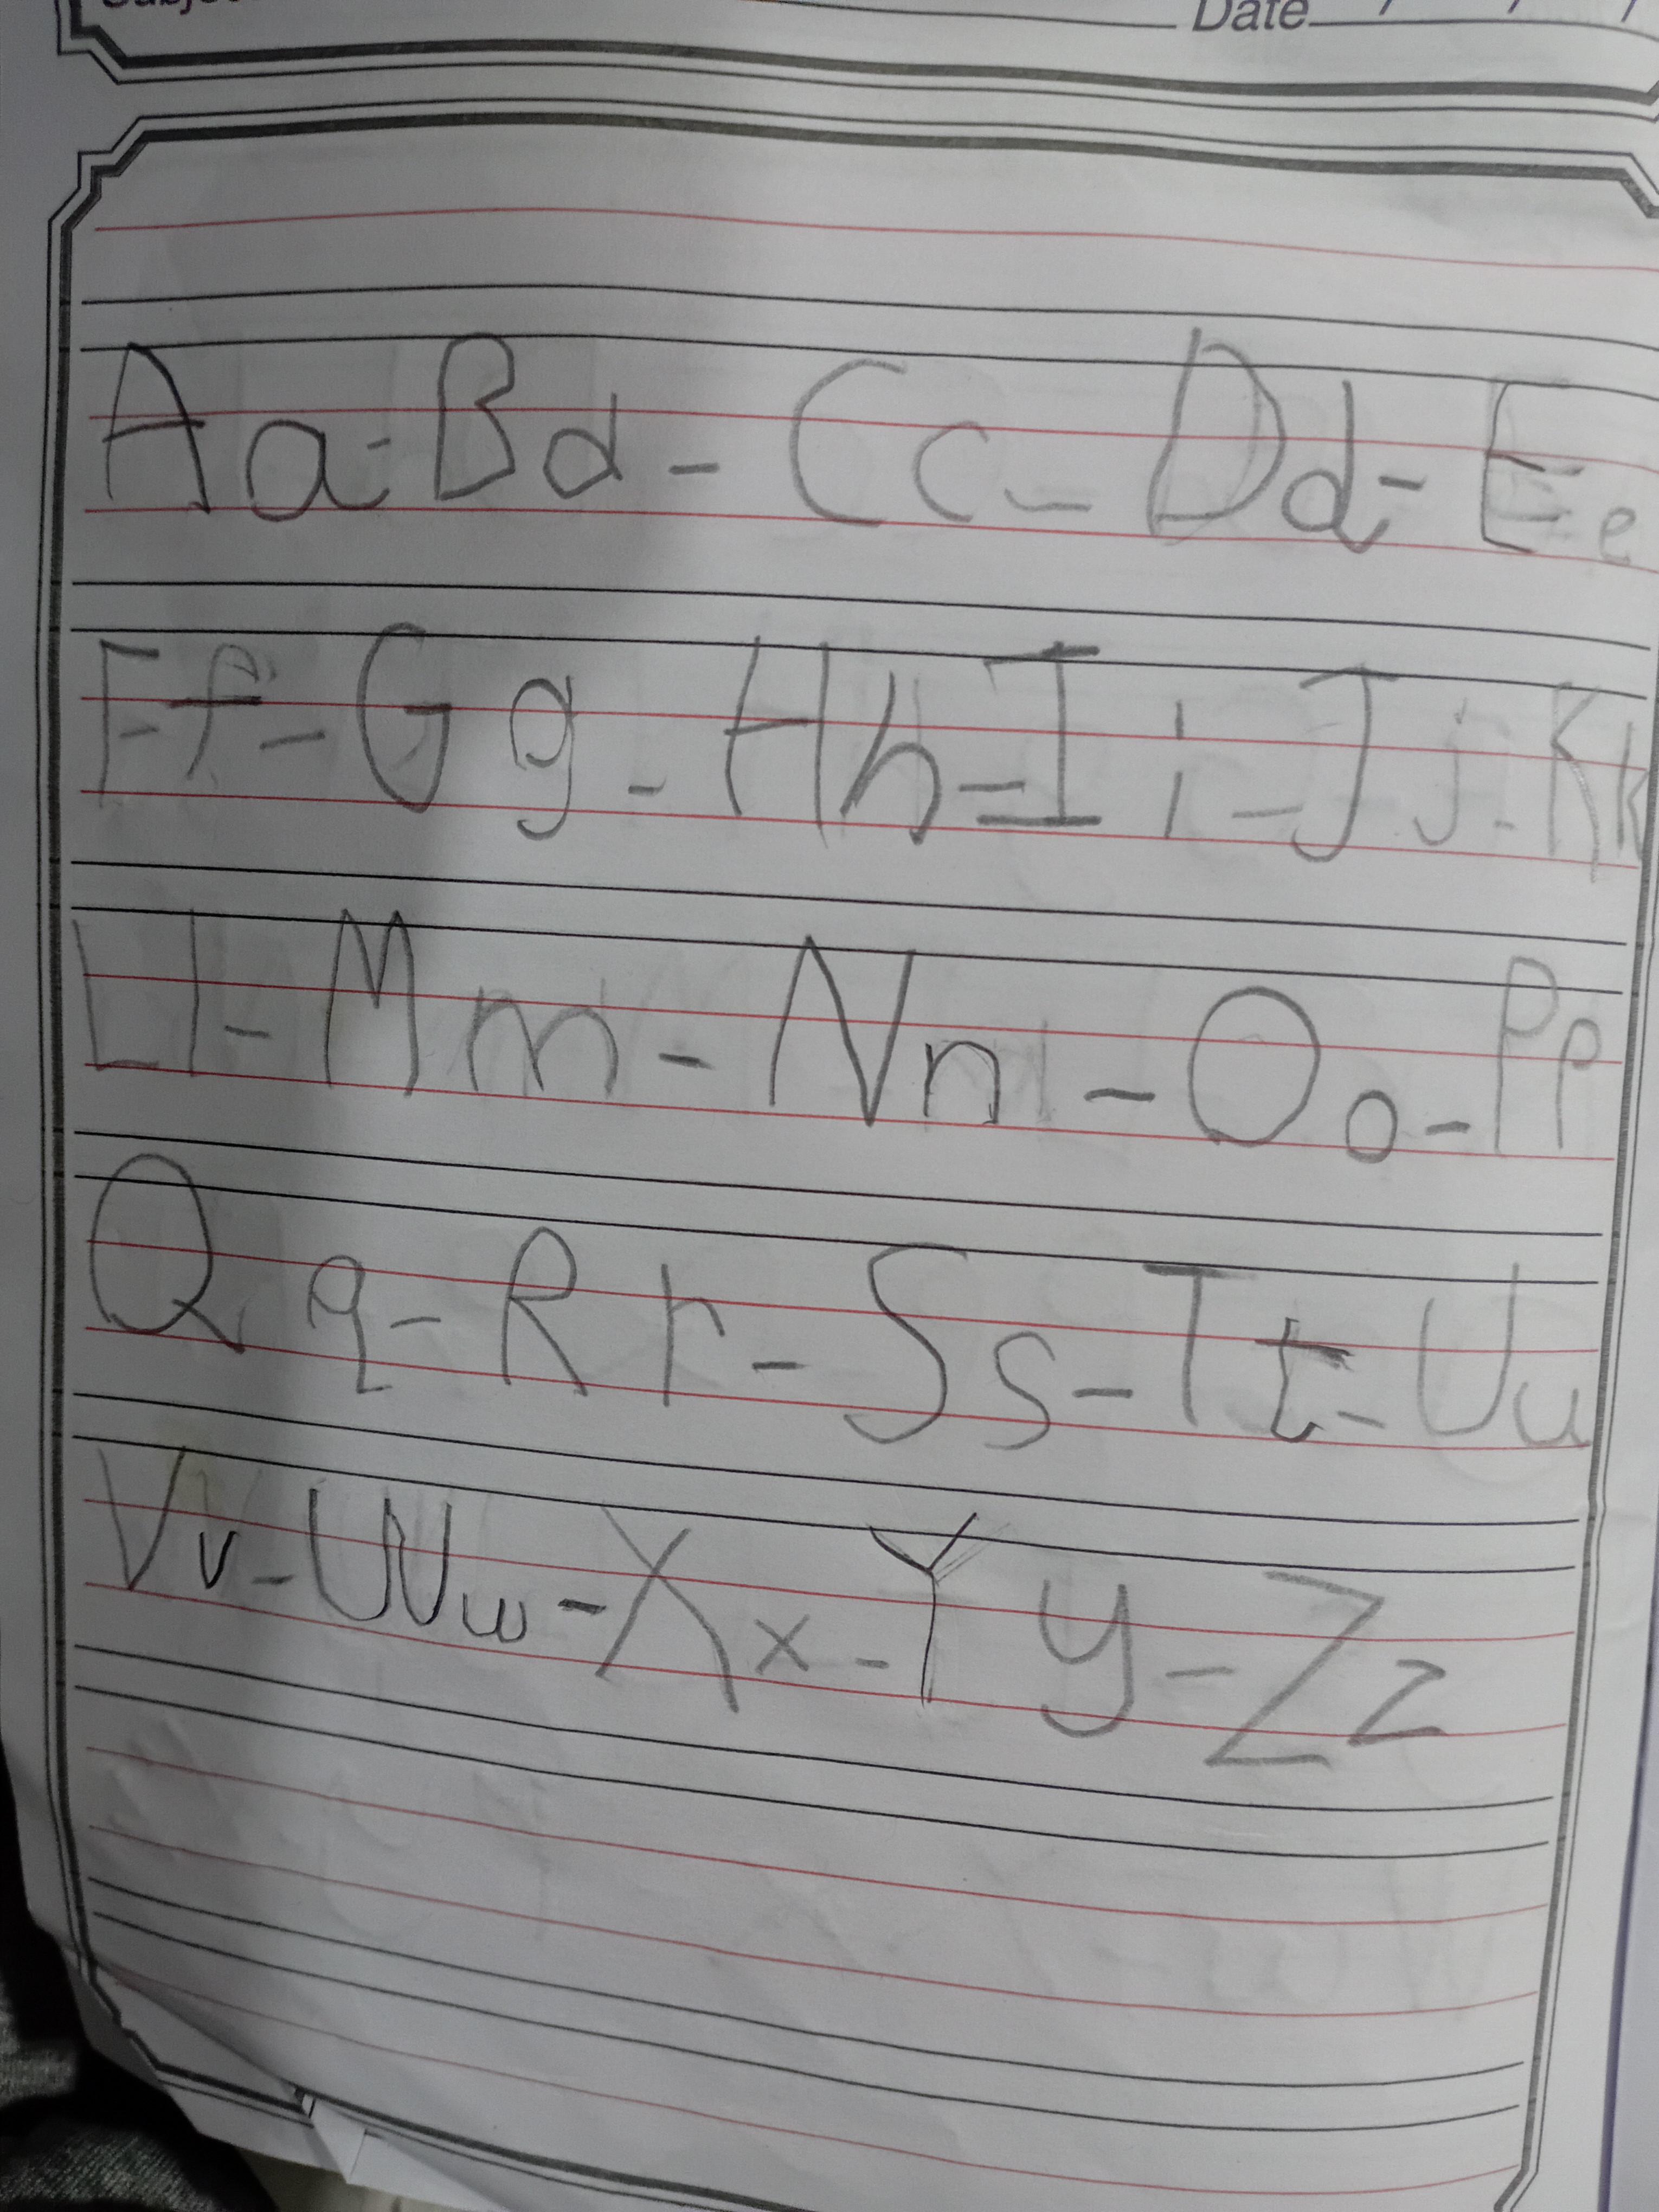 Subject Date / / /
Aa-Bd - Cc - Dd - Ee
Ff - Gg - Hh - Ii - Jj - Kk
Ll - Mm - Nn - Oo - Pp
Qq - Rr - Ss - Tt - Uu
Vv - Ww - Xx - Yy - Zz